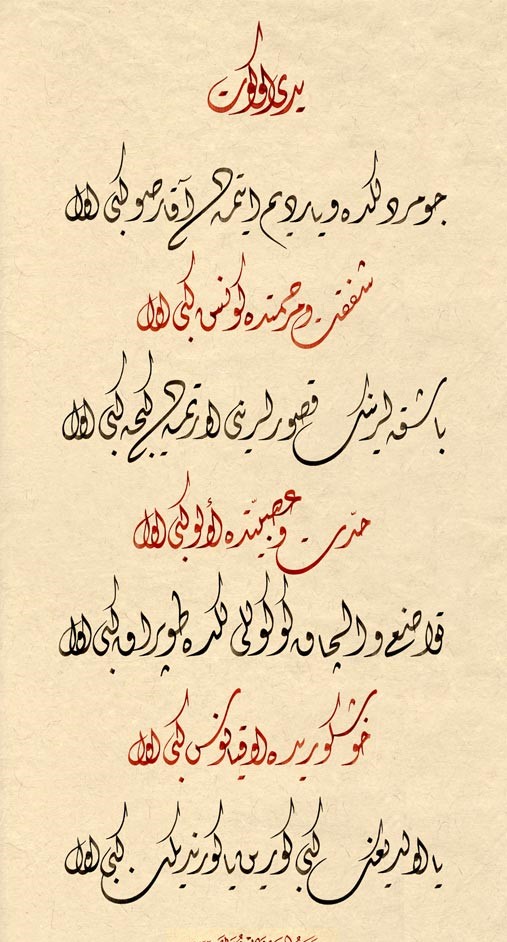 يدى اوكوت
جومردلكده و يارديم ايتمه ده آقار صو كبى اول
شفقت و مرحمتده كونش كبى اول
باشقه لرينك قصورلرينى اورتمه ده كيجه كبى اول
حدت و عصبيتده أولو كبى اول
تواضع و الچاق كوكوللى لكده طوپراق كبى اول
خوشكوريده اوقيانوس كبى اول
يا اولديغك كبى كورين يا كورنديگك كبى اول